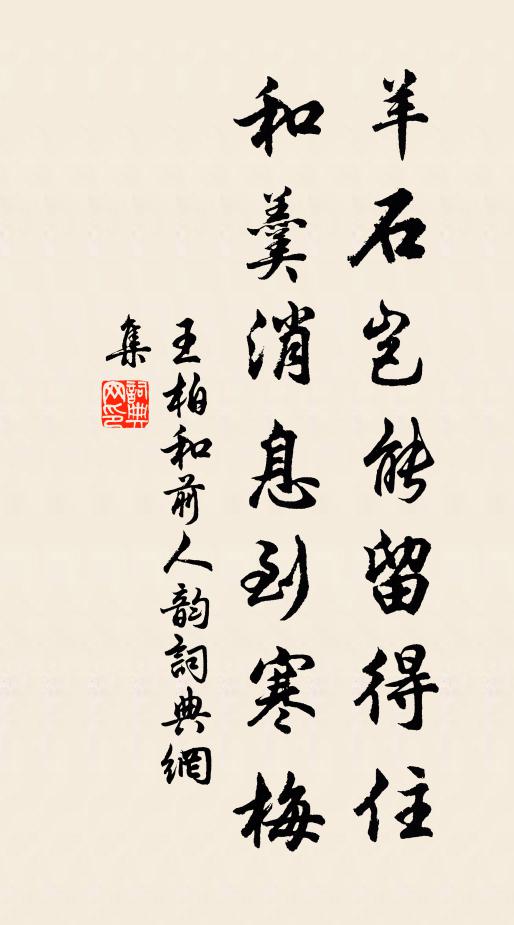 羊石岂能留得住
和羹消息到寒梅
王柏和前人韵詞典網
集
詞典
网印